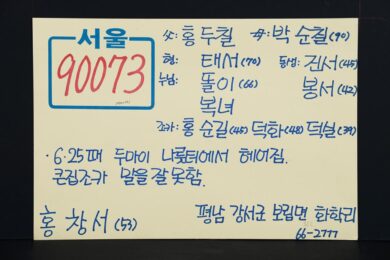 서울
90073
父: 홍두칠 母: 박순칠(90)
형: 태서(70) 동생: 진서(45)
누님: 똘이(66) 봉서(42)
복녀
조카: 홍순길(45) 덕화(48) 덕실(39)
·6·25때 두마이 나룻터에서 헤어짐.
큰집조카 말을 잘 못함.
홍창서(53) 평남 강서군 보림면 화학리
66-2777